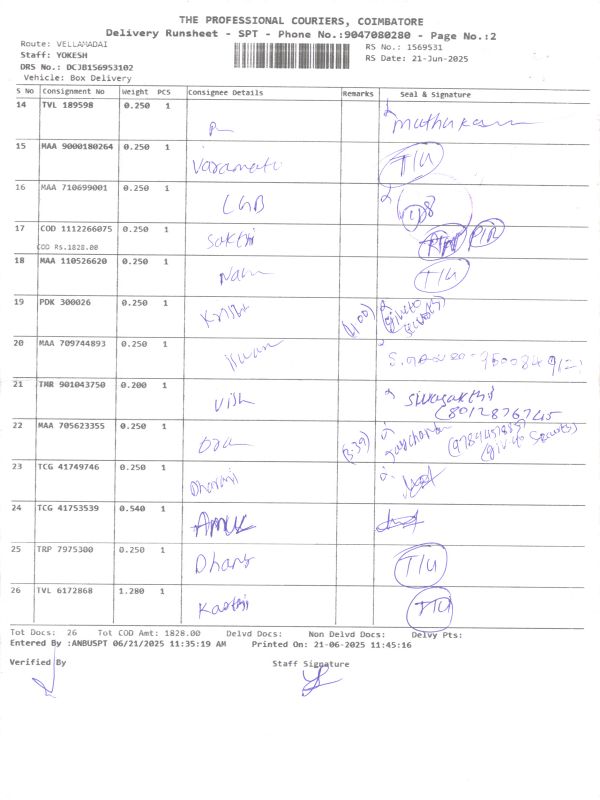 THE PROFESSIONAL COURIERS, COIMBATORE
Delivery Runsheet - SPT - Phone No.:9047080280 - Page No.:2
Route: VELLAMADAI
RS No.: 1569531
Staff: YOKESH
RS Date: 21-Jun-2025
DRS No.: DCJB156953102
Vehicle: Box Delivery
S No Consignment No Weight PCS Consignee Details Remarks Seal & Signature
14 TVL 189598 0.250 1
15 MAA 9000180264 0.250 1 T/U
16 MAA 710699001 0.250 1 LGB
17 COD 1112266075 0.250 1 Sakthi
COD Rs.1828.00
18 MAA 110526620 0.250 1 T/U
19 PDK 300026 0.250 1
20 MAA 709744893 0.250 1
21 TMR 901043750 0.200 1 Vish Sivasakthi
(8012876745
22 MAA 705623355 0.250 1 (3:39)
23 TCG 41749746 0.250 1 Dharani
24 TCG 41753539 0.540 1
25 TRP 7975300 0.250 1 T/U
26 TVL 6172868 1.280 1 T/U
Tot Docs: 26 Tot COD Amt: 1828.00 Delvd Docs: Non Delvd Docs: Delvy Pts:
Entered By :ANBUSPT 06/21/2025 11:35:19 AM Printed On: 21-06-2025 11:45:16
Verified By Staff Signature